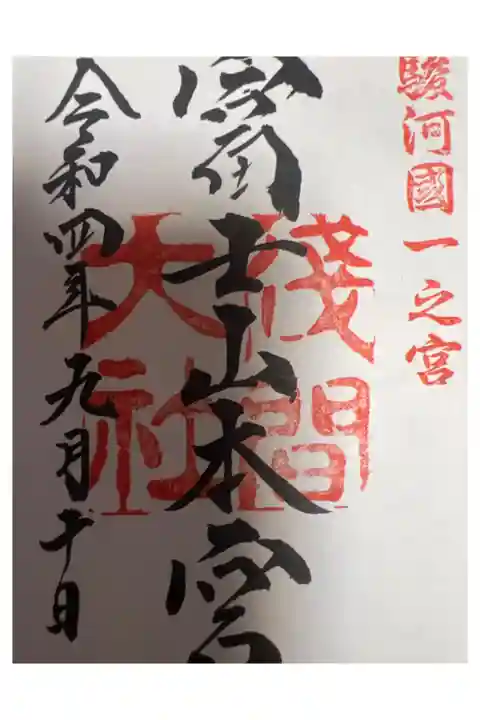 駿河國一之宮
富士山本宮
淺間
大社
令和四年九月十日